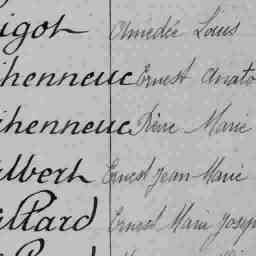 igot Amedée Louis
henneuc Ernest Anato
henneuc Pierre Marie
lbert Ernest Jean Marie
llard Ernest Marie Joseph